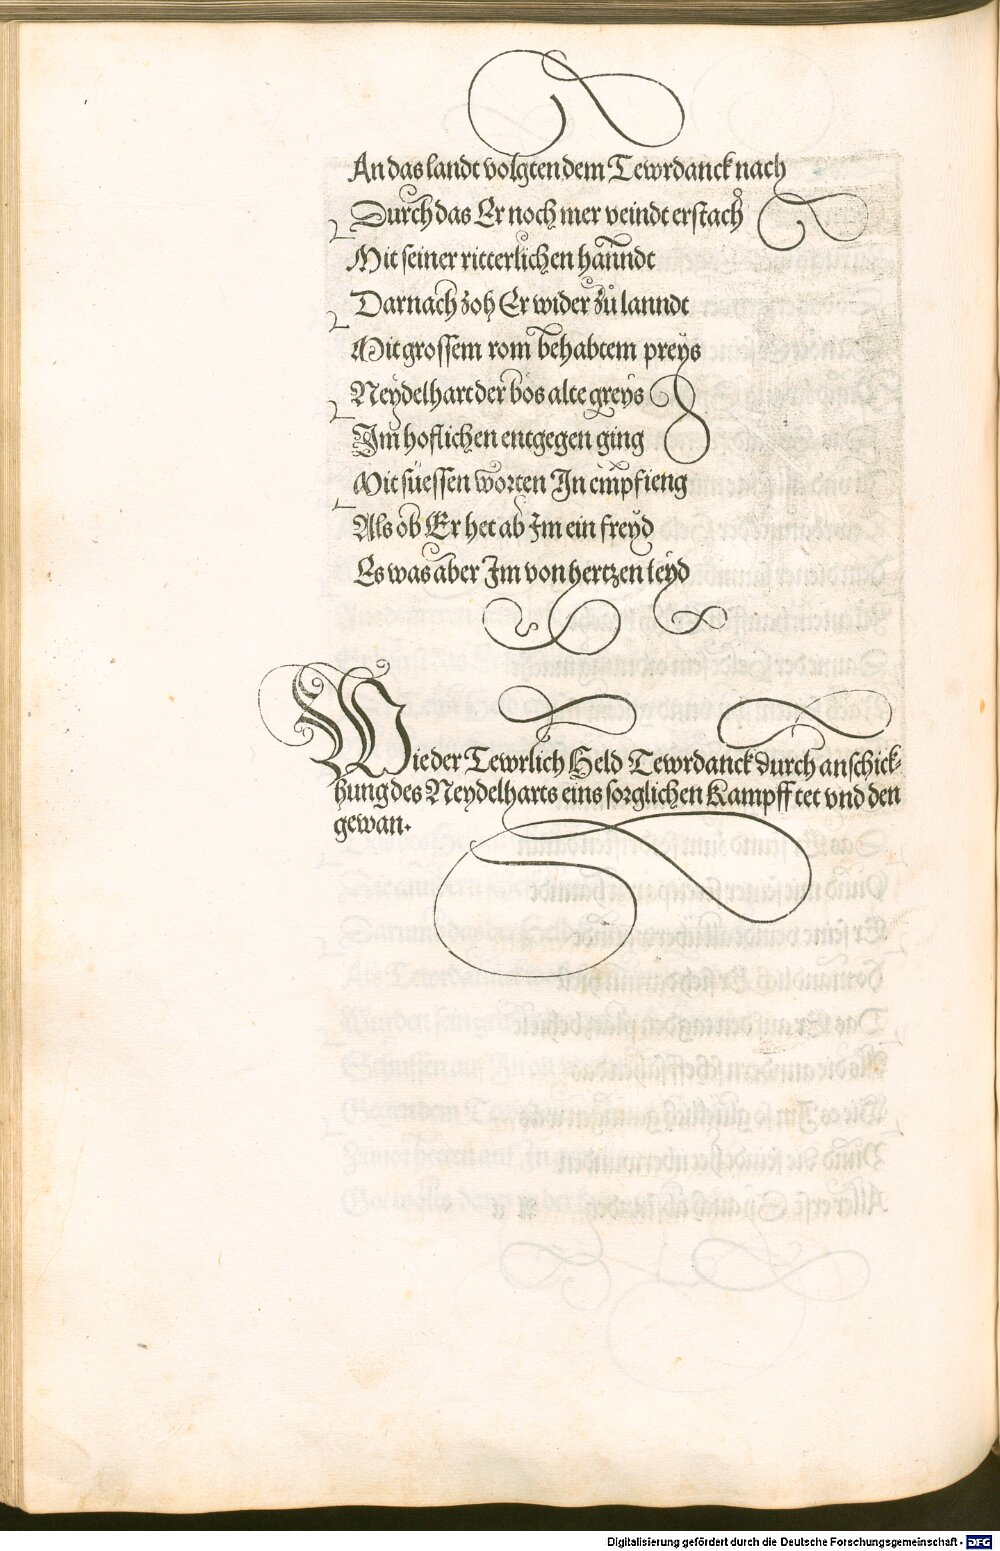 An das landt volgten dem Tewrdanck nach
Durch das Er noch mer veindt erstach
Mit seiner ritterlichen hanndt
Darnach zoh Er wider zů lanndt
Mit grossem rom behabtem preys
Neydelhart der bös alte greys
Im hoflichen entgegen ging
Mit süessen worten In empfieng
Als ob Er het ab Im ein freyd
Es was aber Im von hertzen leyd
Wie der Tewrlich Held Tewrdanck durch anschick-
hung des Neydelharts eins sorglichen Kampff tet vnd den
gewan.
Digitalisierung gefördert durch die Deutsche Forschungsgemeinschaft - DFG